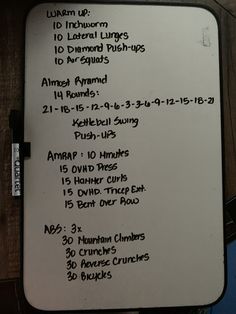 WARM UP:
10 Inchworm
10 Lateral Lunges
10 Diamond Push-ups
10 Air Squats
Almost Pyramid
14 Rounds:
21-18-15-12-9-6-3-3-6-9-12-15-18-21
Kettlebell Swing
Push-ups
AMRAP: 10 Minutes
15 OVHD Press
15 Hammer Curls
15 OVHD. Tricep Ext.
15 Bent Over Row
ABS: 3x
30 Mountain Climbers
30 Crunches
30 Reverse Crunches
30 Bicycles